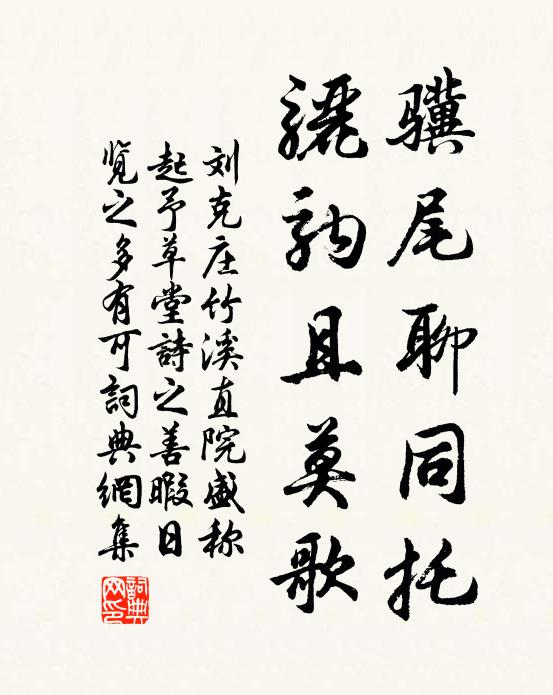 骥尾聊同托
骊驹且莫歌
刘克庄竹溪直院盛称
起予草堂詩之善暇日
览之多有可詞典網集
詞典网印